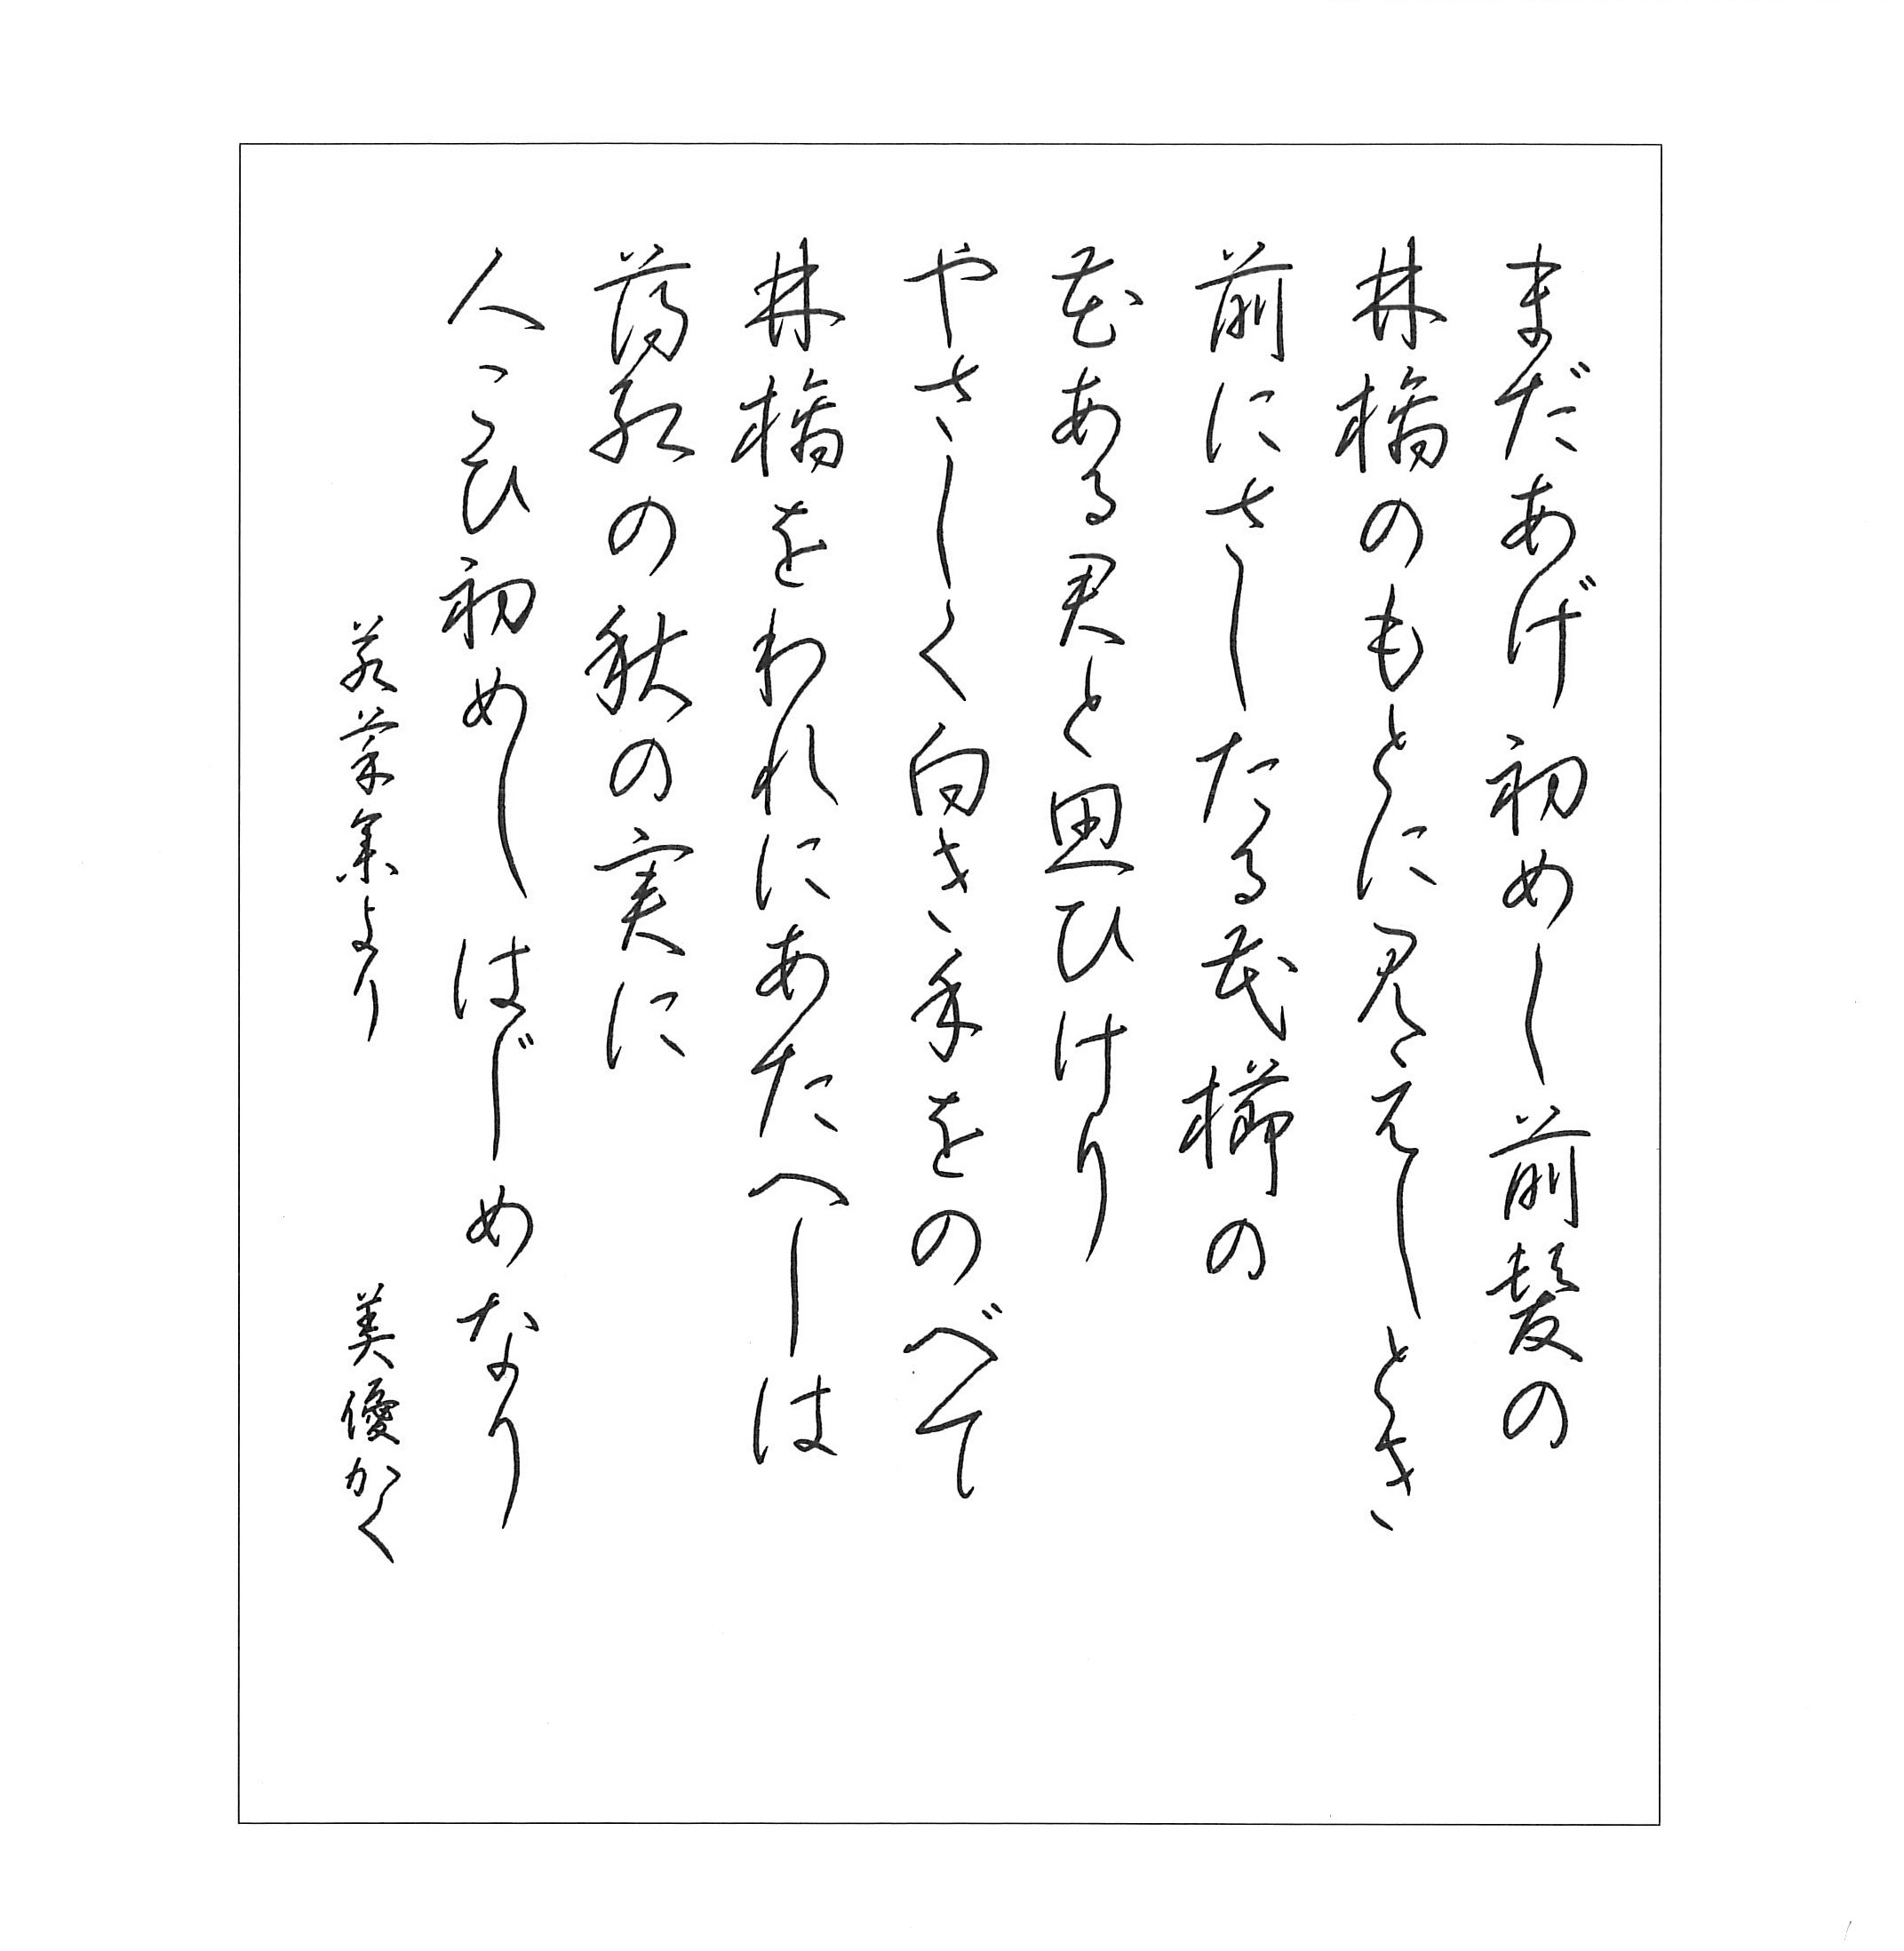 まだあげ初めし前髪の
林檎のもとに見えしとき
前にさしたる花櫛の
花ある君と思ひけり
やさしく白き手をのべて
林檎をわれにあたへしは
薄紅の秋の実に
人こひ初めしはじめなり
若菜集より 美優かく